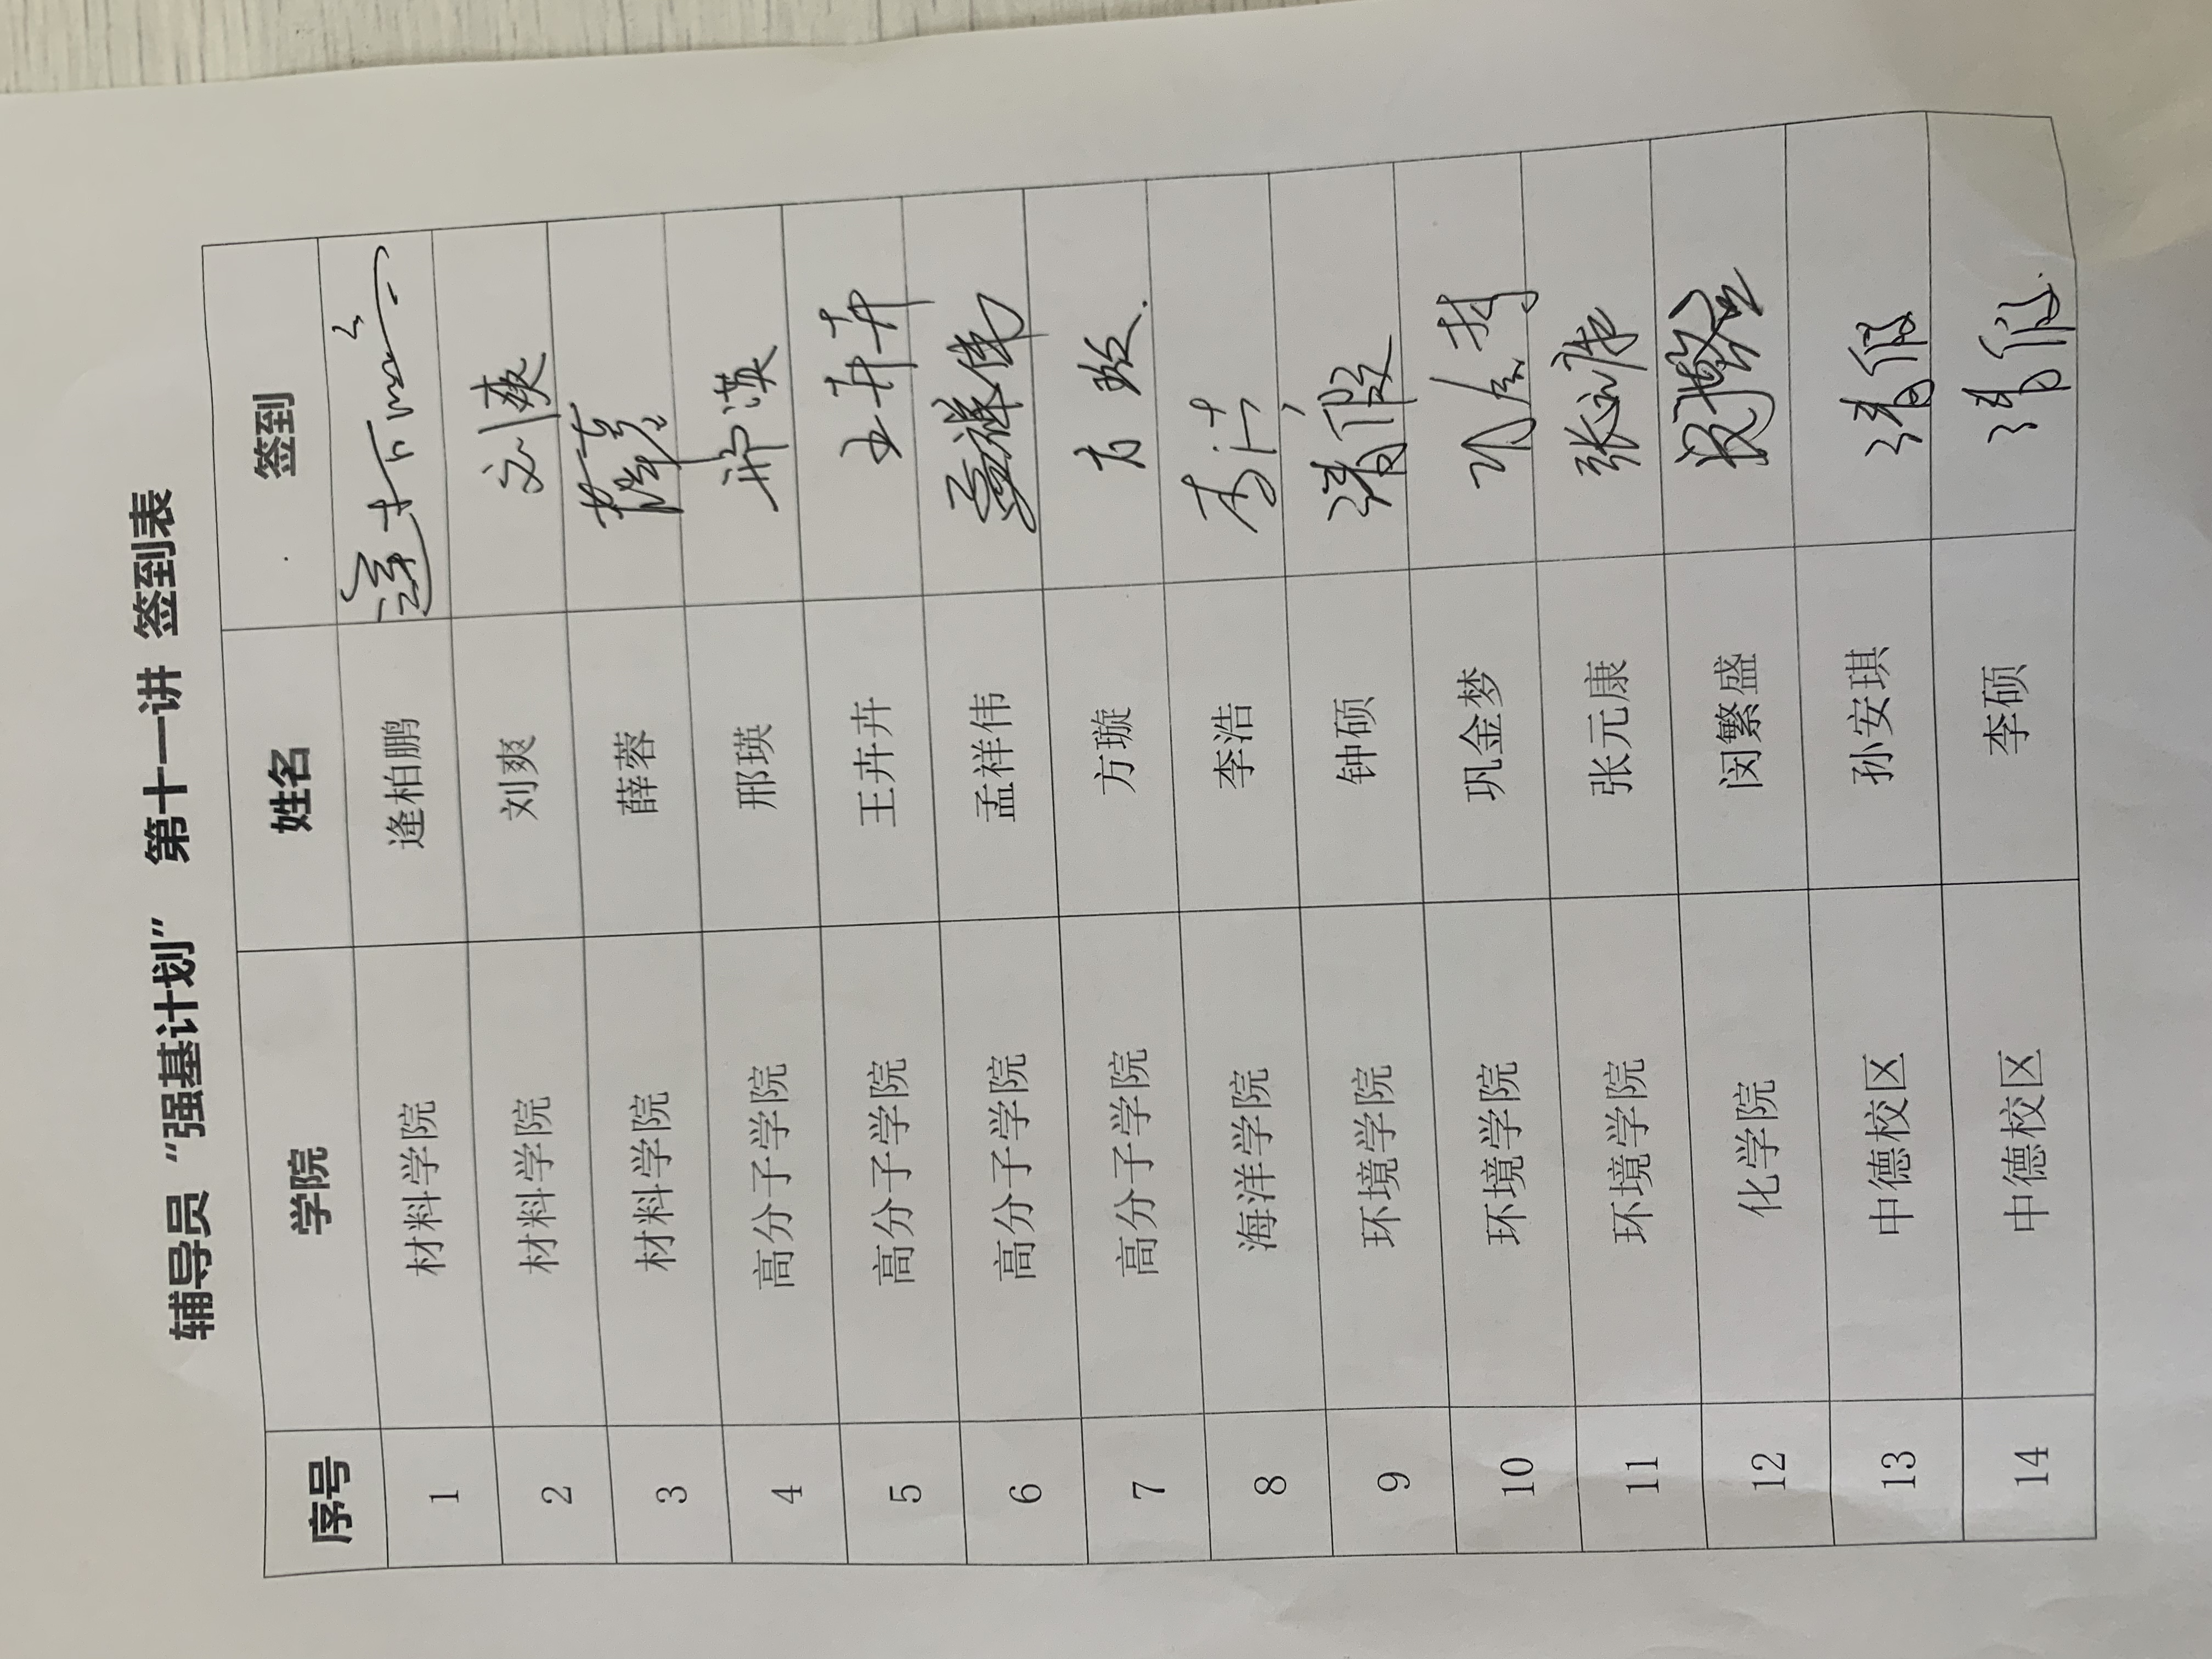 辅导员“强基计划” 第十一讲 签到表
序号 学院 姓名 签到
1 材料学院 逄柏鹏 逄柏鹏
2 材料学院 刘爽 刘爽
3 材料学院 薛蓉 薛蓉
4 高分子学院 邢瑛 邢瑛
5 高分子学院 王卉卉 王卉卉
6 高分子学院 孟祥伟 孟祥伟
7 高分子学院 方璇 方璇
8 海洋学院 李浩 李浩
9 环境学院 钟硕 请假
10 环境学院 巩金梦 巩金梦
11 环境学院 张元康 张元康
12 化学院 闵繁盛 闵繁盛
13 中德校区 孙安琪 请假
14 中德校区 李硕 请假